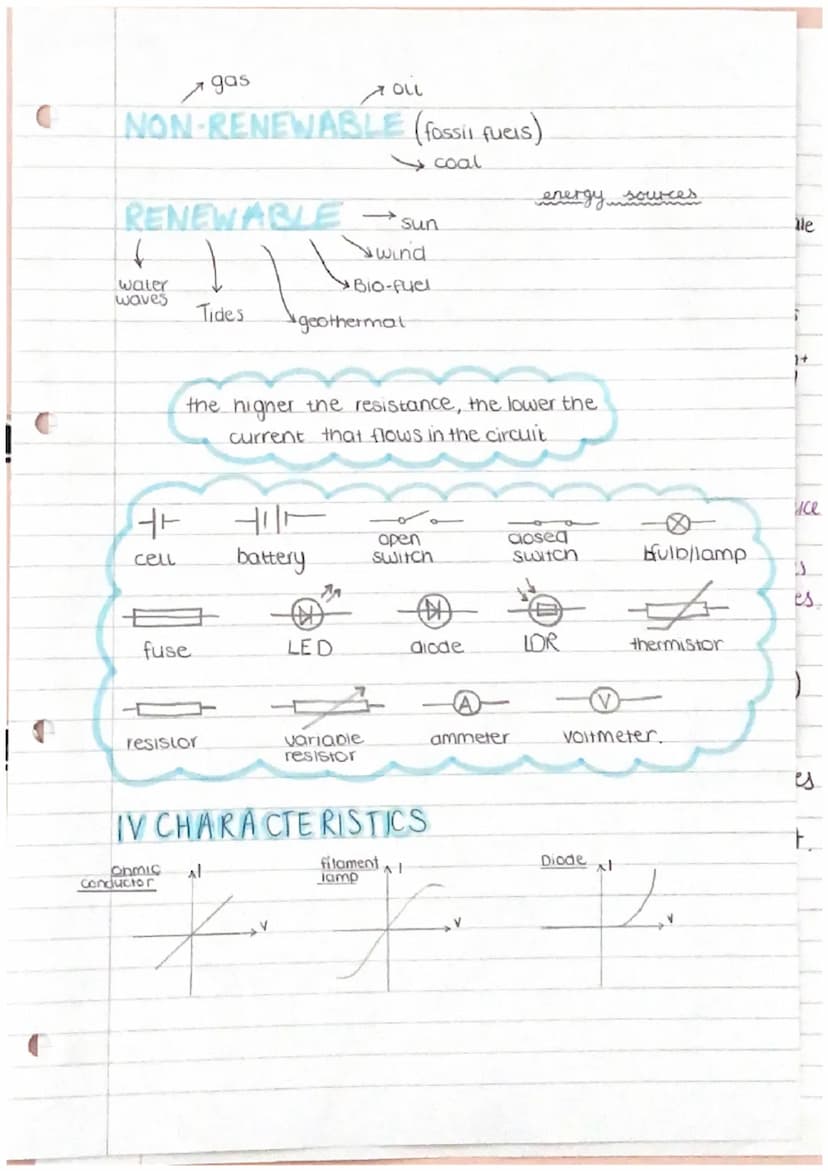 gas
oil
NON-RENEWABLE (fossil fuels)
coal
energy sources
RENEWABLE
sun
wind
water
waves
Bio-fuel
Tides
geothermal
the higher the resistance, the lower the
current that flows in the circuit
cell
battery
open
switch
closed
switch
bulb/lamp
fuse
LED
diode
LDR
thermistor
A
V
resistor
variable
resistor
ammeter
voltmeter.
IV CHARACTERISTICS
ohmic
conductor
I
V
filament
lamp
I
V
Diode
I
V